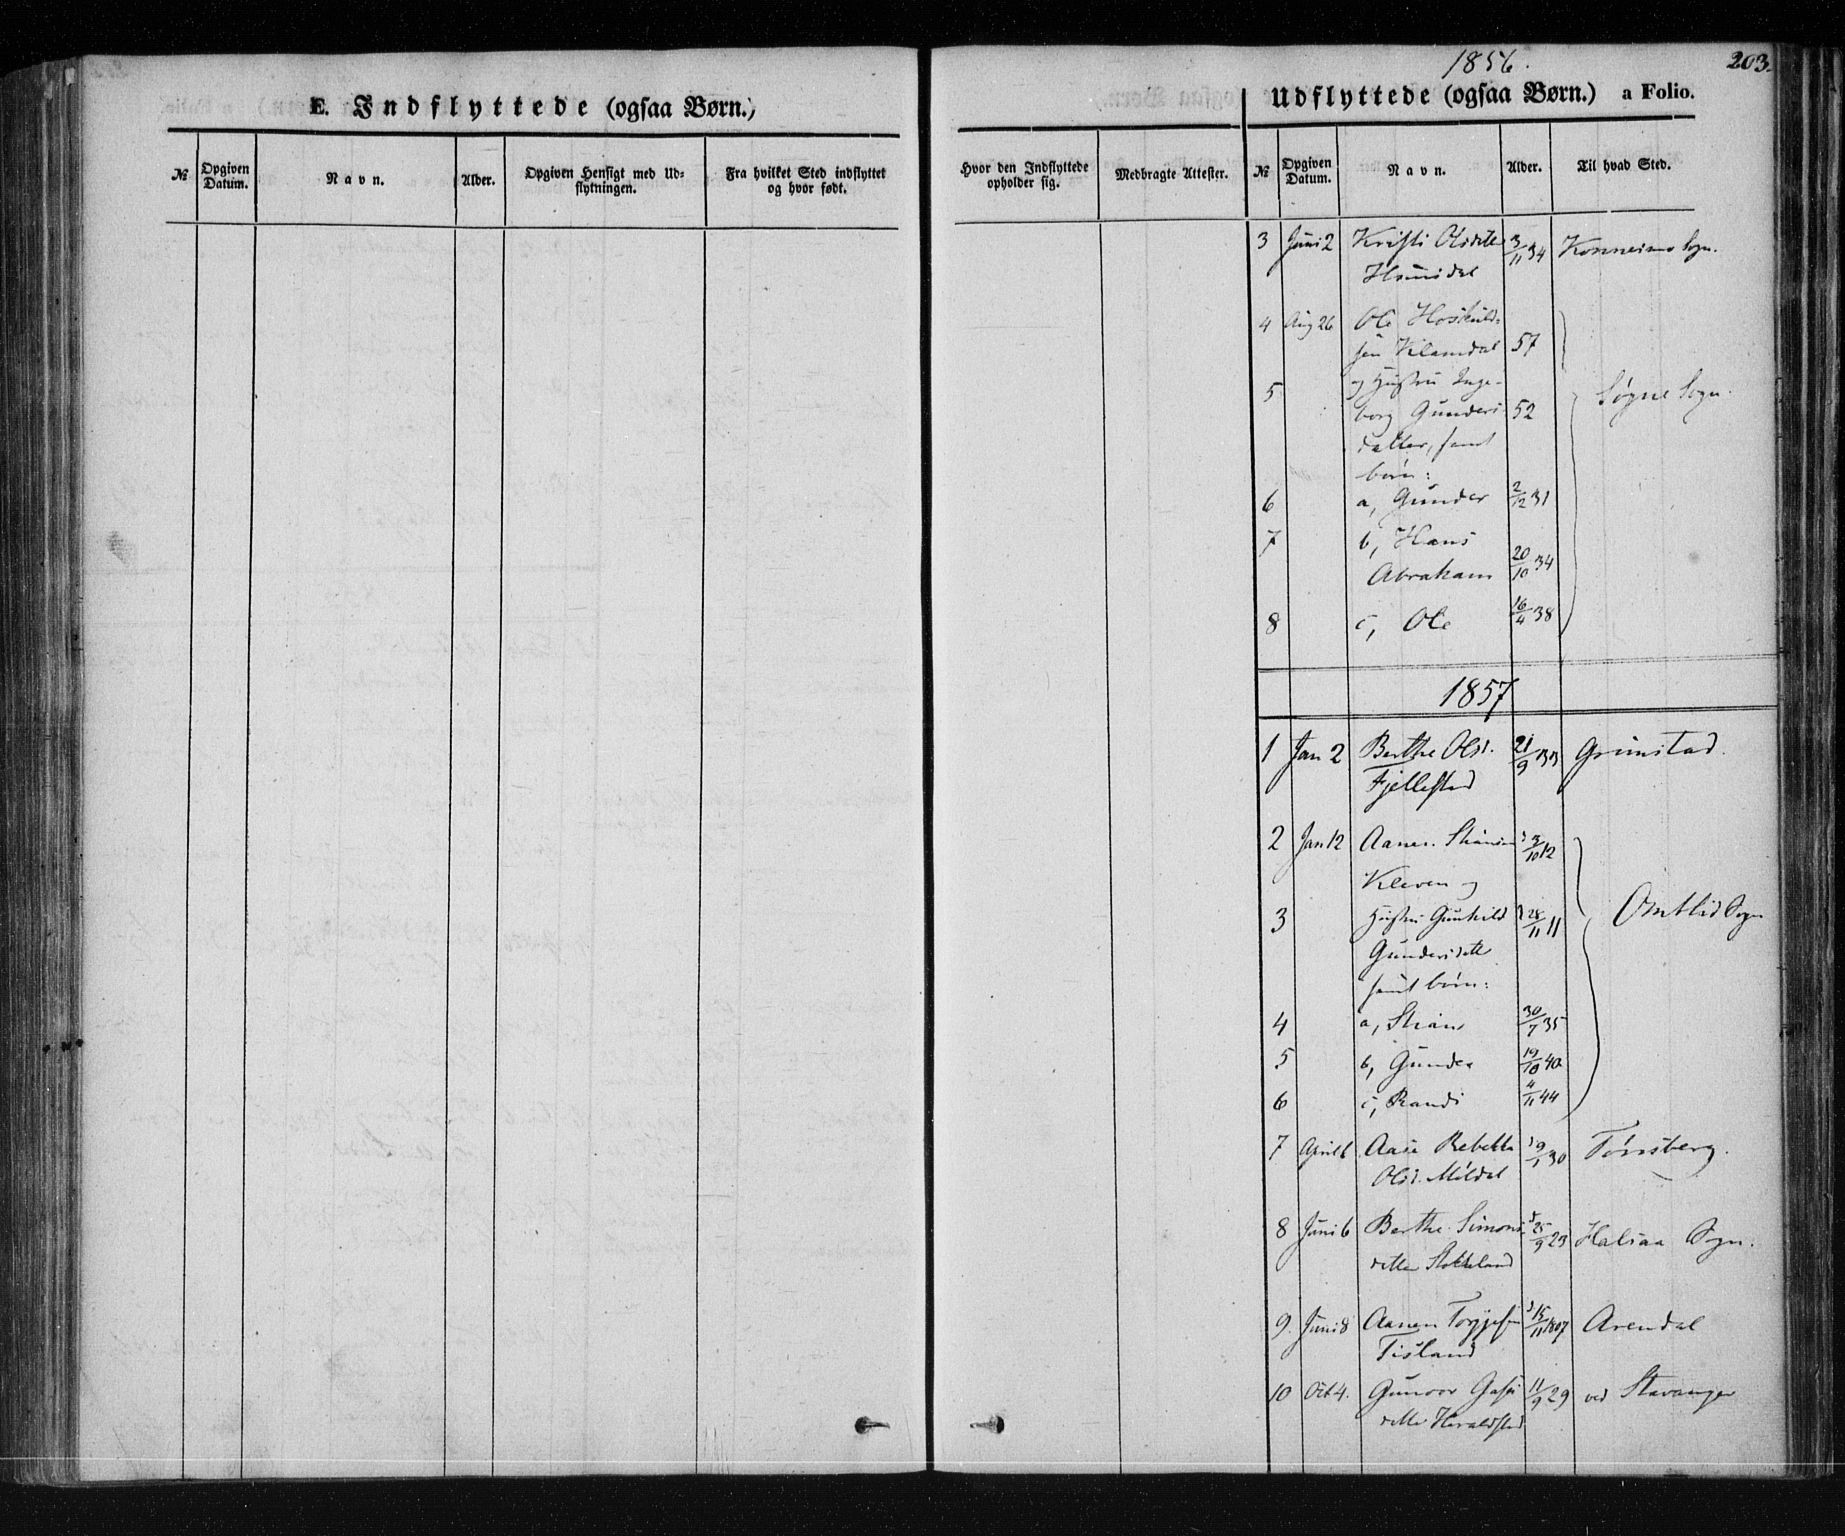 1856.
203.
E. Indflyttede (ogsaa Børn.)
№ Opgiven Datum. Navn. Alder. Opgiven Hensigt med Udflytningen. Fra hvilket Sted indflyttet og hvor født.
Hvor den Indflyttede opholder sig. Medbragte Attester.
Udflyttede (ogsaa Børn.) a Folio.
№ Opgiven Datum. Navn. Alder. Til hvad Sted.
3 Juni 2 Kristi Olsdtter 3/11 34 Konnesmo Sogn.
4 Aug 26 Ole Hoskuld-
sen Kleondal 57
5 og Hustru Inge- Søgne Sogn.
borg Gunders 52
datter, samt
børn:
6 a, Gunder 2/12 31
7 b, Hans
Abraham 20/10 34
8 c, Ole 16/4 38
1857
1 Jan 2 Berthe Olsd. 21/9 33 Grimstad.
Fjellestad
2 Jan 12 Aanen 3/10 12
Kleven og
3 Hustru Gunhild 28/11 11 Omblid Sogn
Gundersdtt
samt børn:
4 a, 30/7 35
5 b, Gunder 19/10 40
6 c, Randi 4/11 44
7 April 6 Aase Rebekka 9/1 30 Tønsberg.
Olsd. Mildal
8 Juni 6 Berthe Simons 25/9 29 Halsaa Sogn.
dtter Stokkeland
9. Juni 8 Aanen Torjesen 15/11 1807 Arendal
Tisland
10 Oct 4. Gunvor 11/9 29 ved Stavanger
dtter Heraldsted